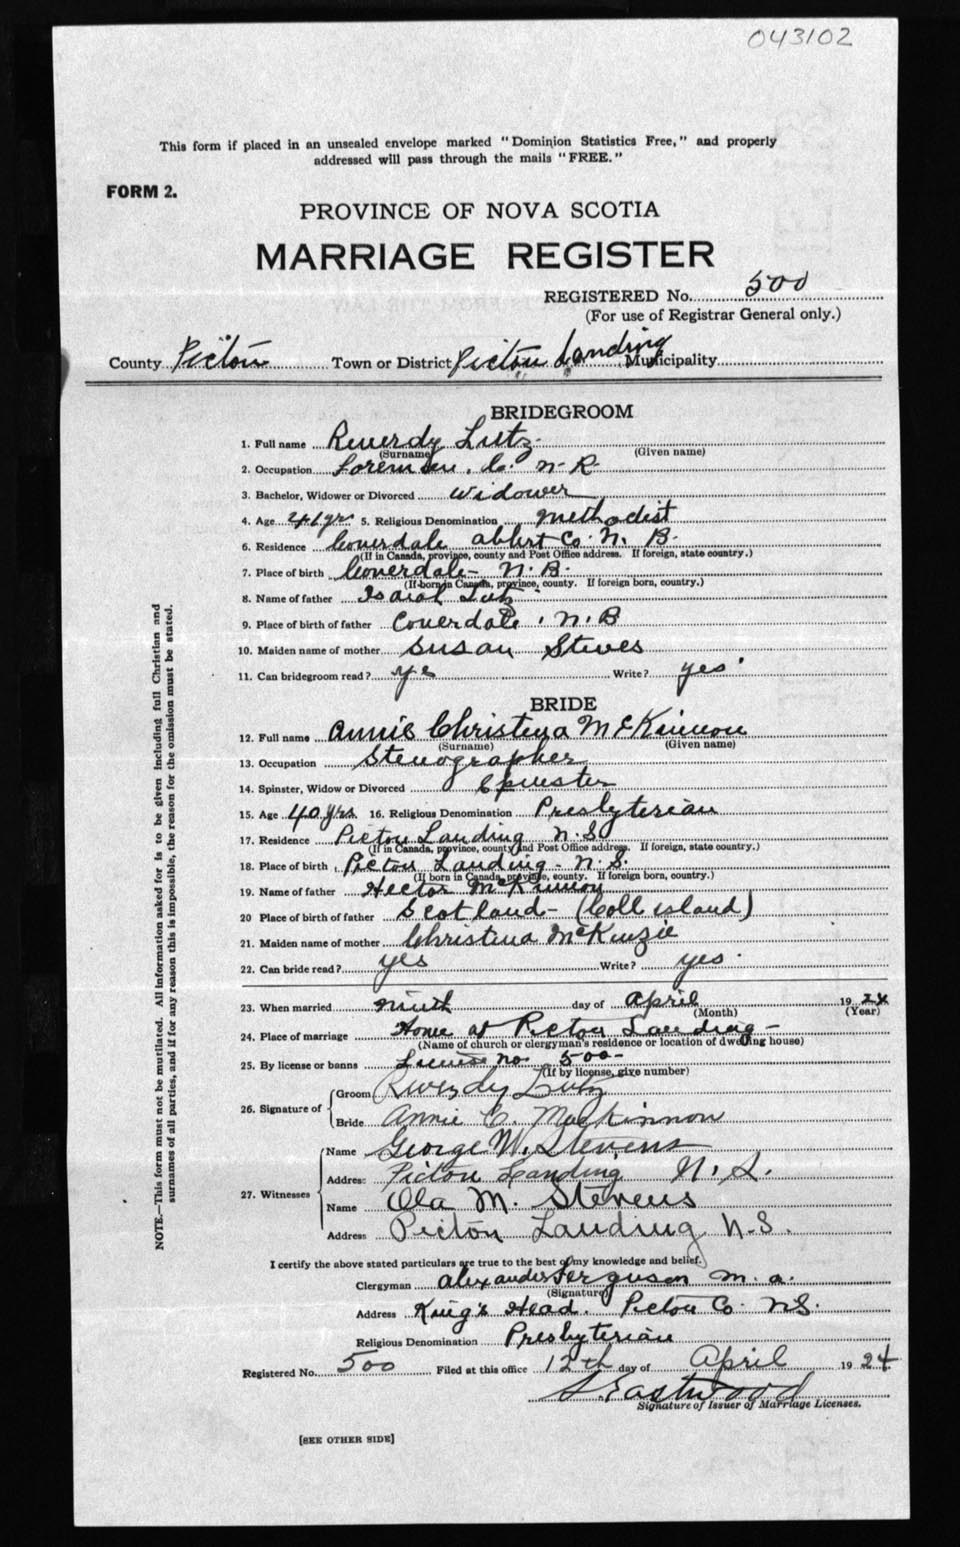 043102
This form if placed in an unsealed envelope marked "Dominion Statistics Free," and properly
addressed will pass through the mails "FREE."
FORM 2.
PROVINCE OF NOVA SCOTIA
MARRIAGE REGISTER
REGISTERED No. 500
(For use of Registrar General only.)
County Pictou Town or District Pictou Landing Municipality
BRIDEGROOM
1. Full name Reverdy Lutz
(Surname) (Given name)
2. Occupation Foreman. C. N. R.
3. Bachelor, Widower or Divorced widower
4. Age 41 yr. 5. Religious Denomination Methodist
6. Residence Coverdale Albert Co. N. B.
(If in Canada, province, county and Post Office address. If foreign, state country.)
7. Place of birth Coverdale - N. B.
(If born in Canada, province, county. If foreign born, country.)
8. Name of father Isaiah Lutz
9. Place of birth of father Coverdale. N. B
10. Maiden name of mother Susan Steves
11. Can bridegroom read? yes Write? yes
BRIDE
12. Full name Annie Christena McKinnon
(Surname) (Given name)
13. Occupation Stenographer
14. Spinster, Widow or Divorced Spinster
15. Age 40 yrs 16. Religious Denomination Presbyterian
17. Residence Pictou Landing N. S.
(If in Canada, province, county and Post Office address. If foreign, state country.)
18. Place of birth Pictou Landing - N. S.
(If born in Canada, province, county. If foreign born, country.)
19. Name of father Hector McKinnon
20 Place of birth of father Scotland - (Coll island)
21. Maiden name of mother Christena McKenzie
22. Can bride read? yes Write? yes
23. When married ninth day of April 1924
(Month) (Year)
24. Place of marriage Home at Pictou Landing -
(Name of church or clergyman's residence or location of dwelling house)
25. By license or banns License No. 500 -
(If by license, give number)
26. Signature of Groom Reverdy Lutz
Bride Annie C. MacKinnon
27. Witnesses Name George W. Stevens
Address Pictou Landing N. S.
Name Ola M. Stevens
Address Pictou Landing N. S.
I certify the above stated particulars are true to the best of my knowledge and belief.
Clergyman Alexander Ferguson M. A.
(Signature)
Address King's Head. Pictou Co. N.S.
Religious Denomination Presbyterian
Registered No. 500 Filed at this office 12th day of April 1924
Eastwood
Signature of Issuer of Marriage Licenses.
[SEE OTHER SIDE]
NOTE.—This form must not be mutilated. All information asked for is to be given including full Christian and
surnames of all parties, and if for any reason this is impossible, the reason for the omission must be stated.